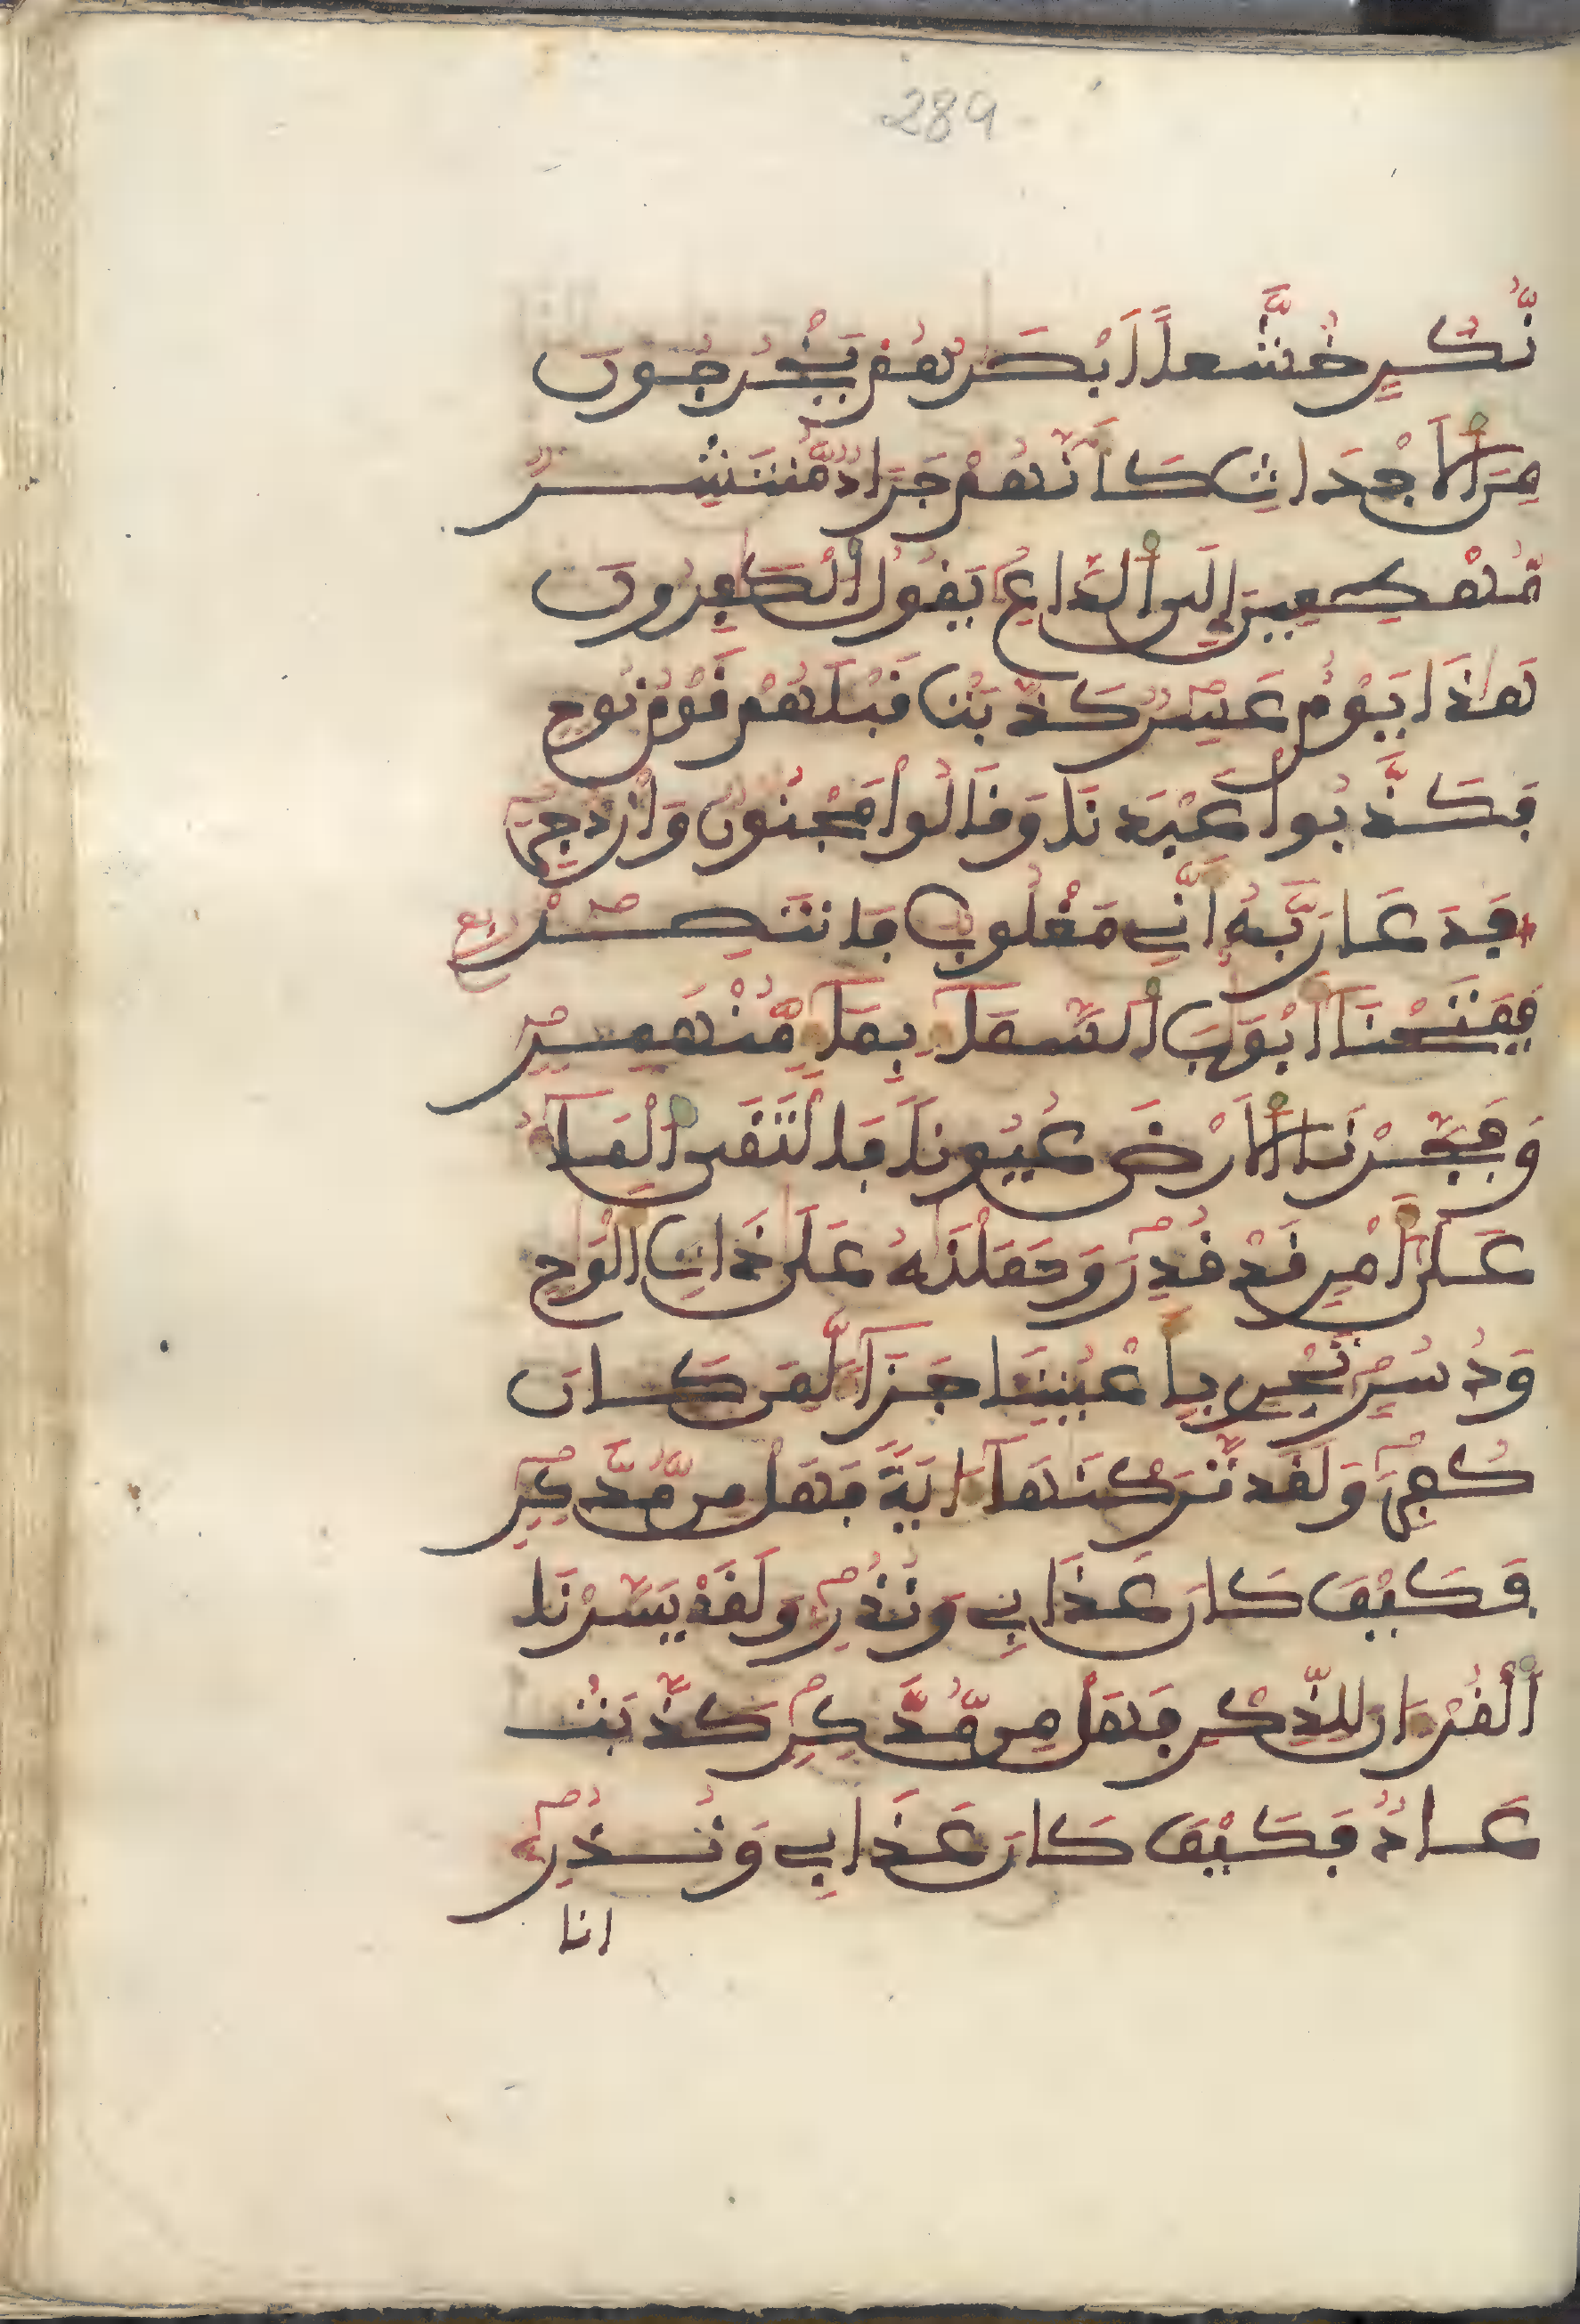 289
نُّكُرٍ خُشَّعاً اَبْصَٰرُهُمْ يَخْرُجُونَ
مِنَ اَ۬لَاجْدَاثِ كَأَنَّهُمْ جَرَادٌ مُّنتَشِرٌ
مُّهْطِعِينَ إِلَى اَ۬لدَّاعِ يَقُولُ اُ۬لْكَٰفِرُونَ
هَٰذَا يَوْمٌ عَسِرٌ كَذَّبَتْ قَبْلَهُمْ قَوْمُ نُوحٍ
فَكَذَّبُواْ عَبْدَنَا وَقَالُواْ مَجْنُونٌ وَازْدُجِرَ
فَدَعَا رَبَّهُۥ أَنِّے مَغْلُوبٌ فَانتَصِرْ ربع
فَفَتَحْنَا أَبْوَٰبَ اَ۬لسَّمَآءِ بِمَآءٍ مُّنْهَمِرٍ
وَفَجَّرْنَا اَ۬لَارْضَ عُيُوناً فَالْتَقَى اَ۬لْمَآءُ
عَلَىٰ أَمْرٍ قَدْ قُدِرَ وَحَمَلْنَٰهُ عَلَىٰ ذَاتِ أَلْوَٰحٍ
وَدُسُرٍ تَجْرِے بِأَعْيُنِنَا جَزَآءً لِّمَن كَانَ
كُفِرَ وَلَقَد تَّرَكْنَٰهَآ ءَايَةً فَهَلْ مِن مُّدَّكِرٍ
فَكَيْفَ كَانَ عَذَابِے وَنُذُرِ وَلَقَدْ يَسَّرْنَا
اَ۬لْقُرْءَانَ لِلذِّكْرِ فَهَلْ مِن مُّدَّكِرٍ كَذَّبَتْ
عَادٌ فَكَيْفَ كَانَ عَذَابِے وَنُذُرِ
انا